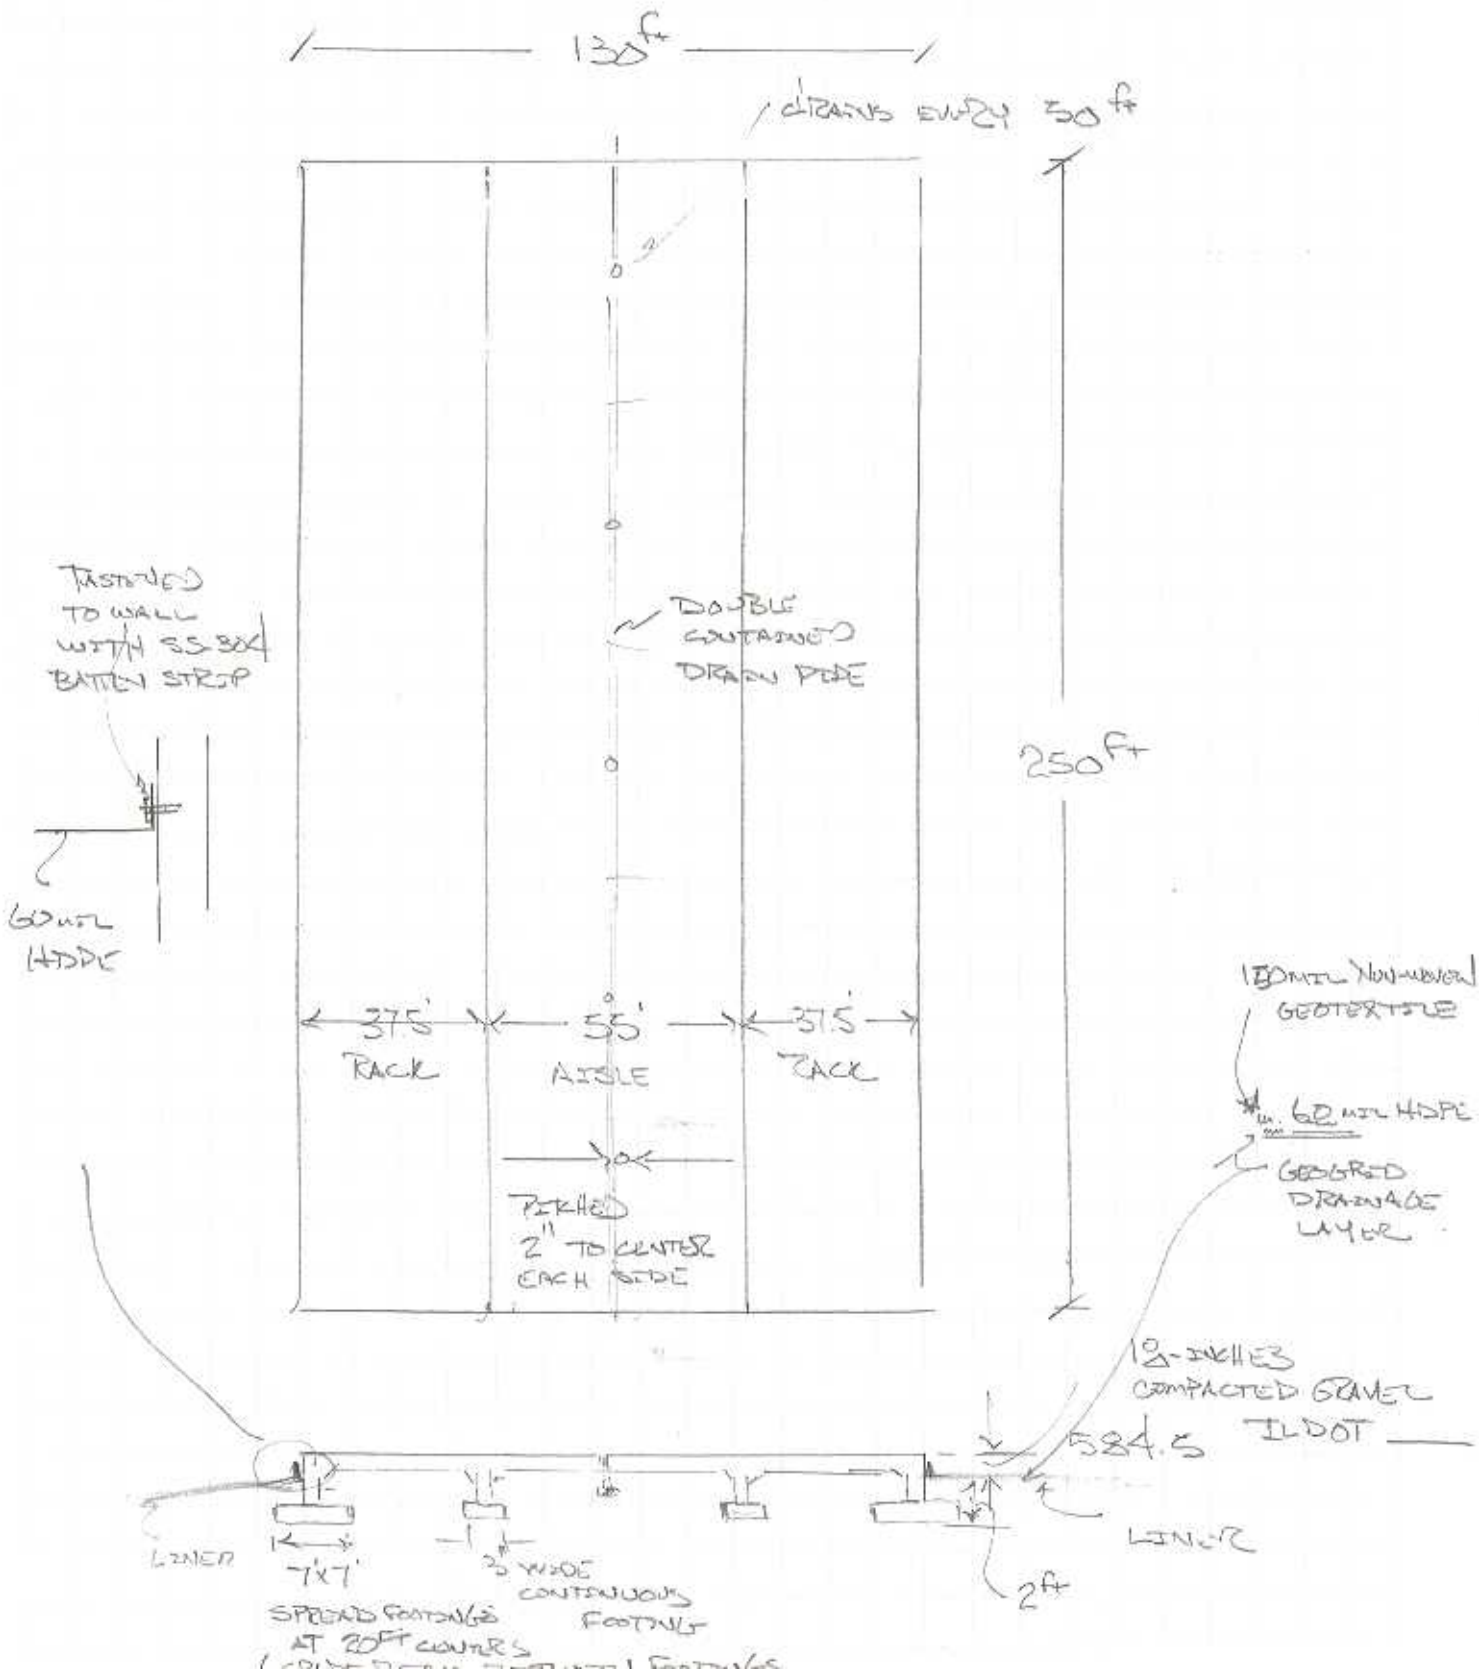 130ft
DRAINS EVERY 50ft
FASTENED
TO WALL
WITH SS-304
BATTEN STRIP
60 MIL
HDPE
DOUBLE
CONTAINED
DRAIN PIPE
250ft
37.5'
RACK
55'
AISLE
37.5'
RACK
PITCHED
2" TO CENTER
EACH SIDE
NON-WOVEN
GEOTEXTILE
60 MIL HDPE
GEOGRID
DRAINAGE
LAYER
18-INCHES
COMPACTED GRAVEL
ILDOT
584.5
LINER
LINER
2ft
7'x7'
SPREAD FOOTINGS
AT 20FT CENTERS
3' WIDE
CONTINUOUS
FOOTING